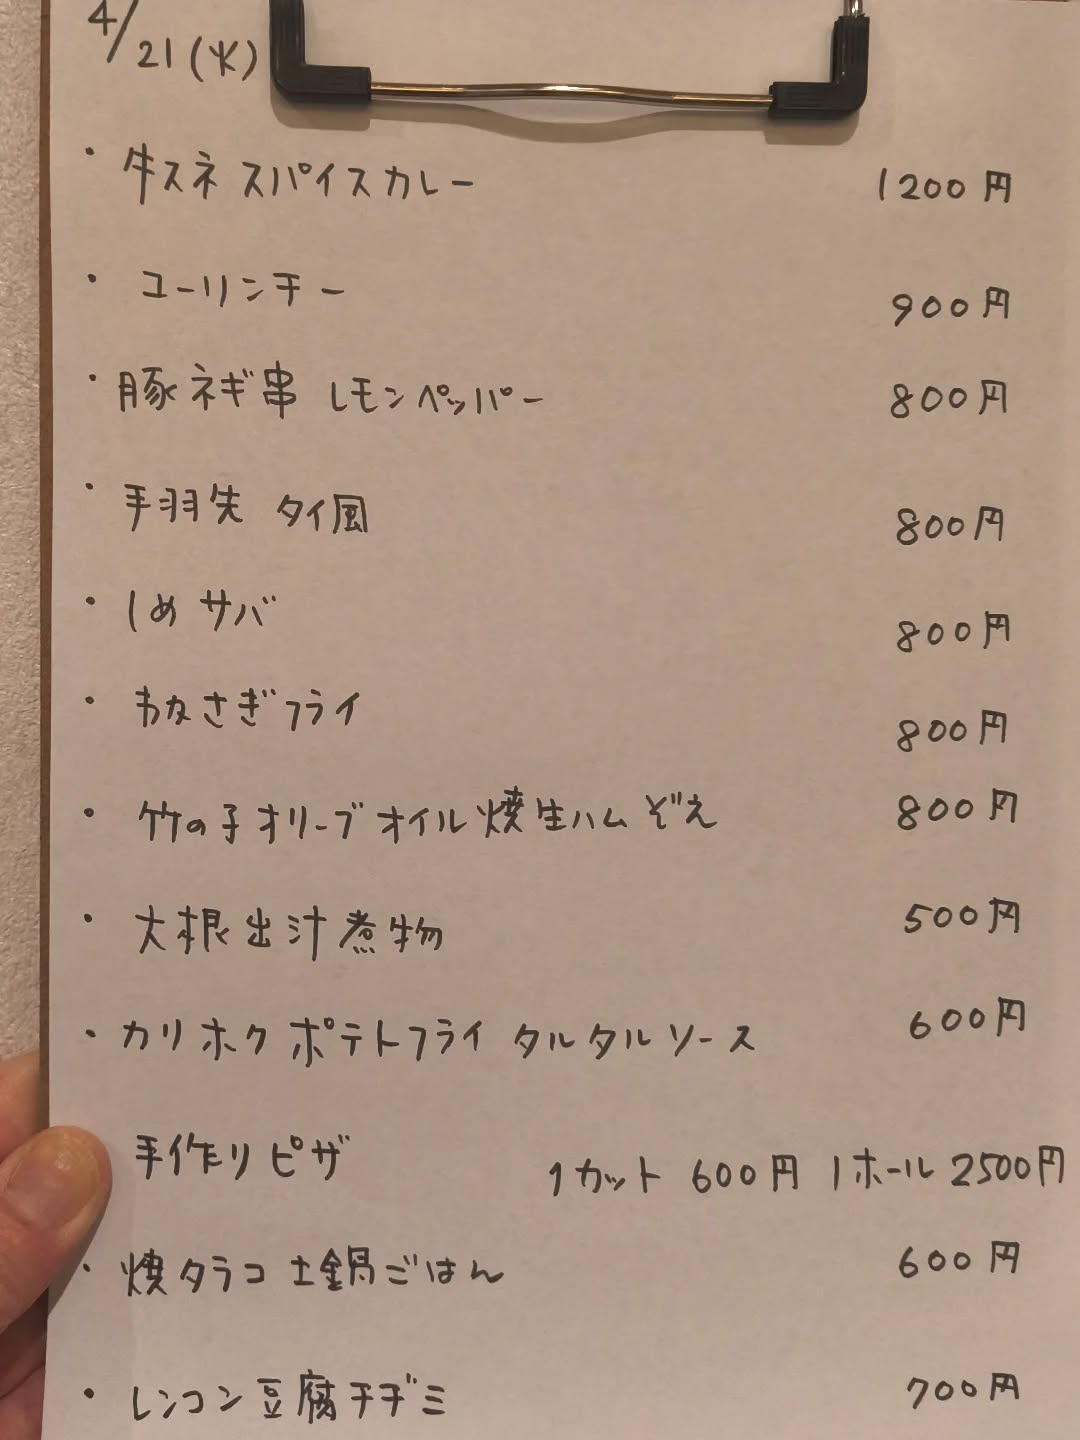 4/21(火)
・牛スネ スパイスカレー 1200円
・ユーリンチー 900円
・豚ネギ串 レモンペッパー 800円
・手羽先 タイ風 800円
・しめサバ 800円
・わかさぎフライ 800円
・竹の子オリーブオイル焼生ハムぞえ 800円
・大根出汁煮物 500円
・カリホク ポテトフライ タルタルソース 600円
手作りピザ 1カット 600円 1ホール 2500円
・焼タラコ 土鍋ごはん 600円
・レンコン豆腐チヂミ 700円